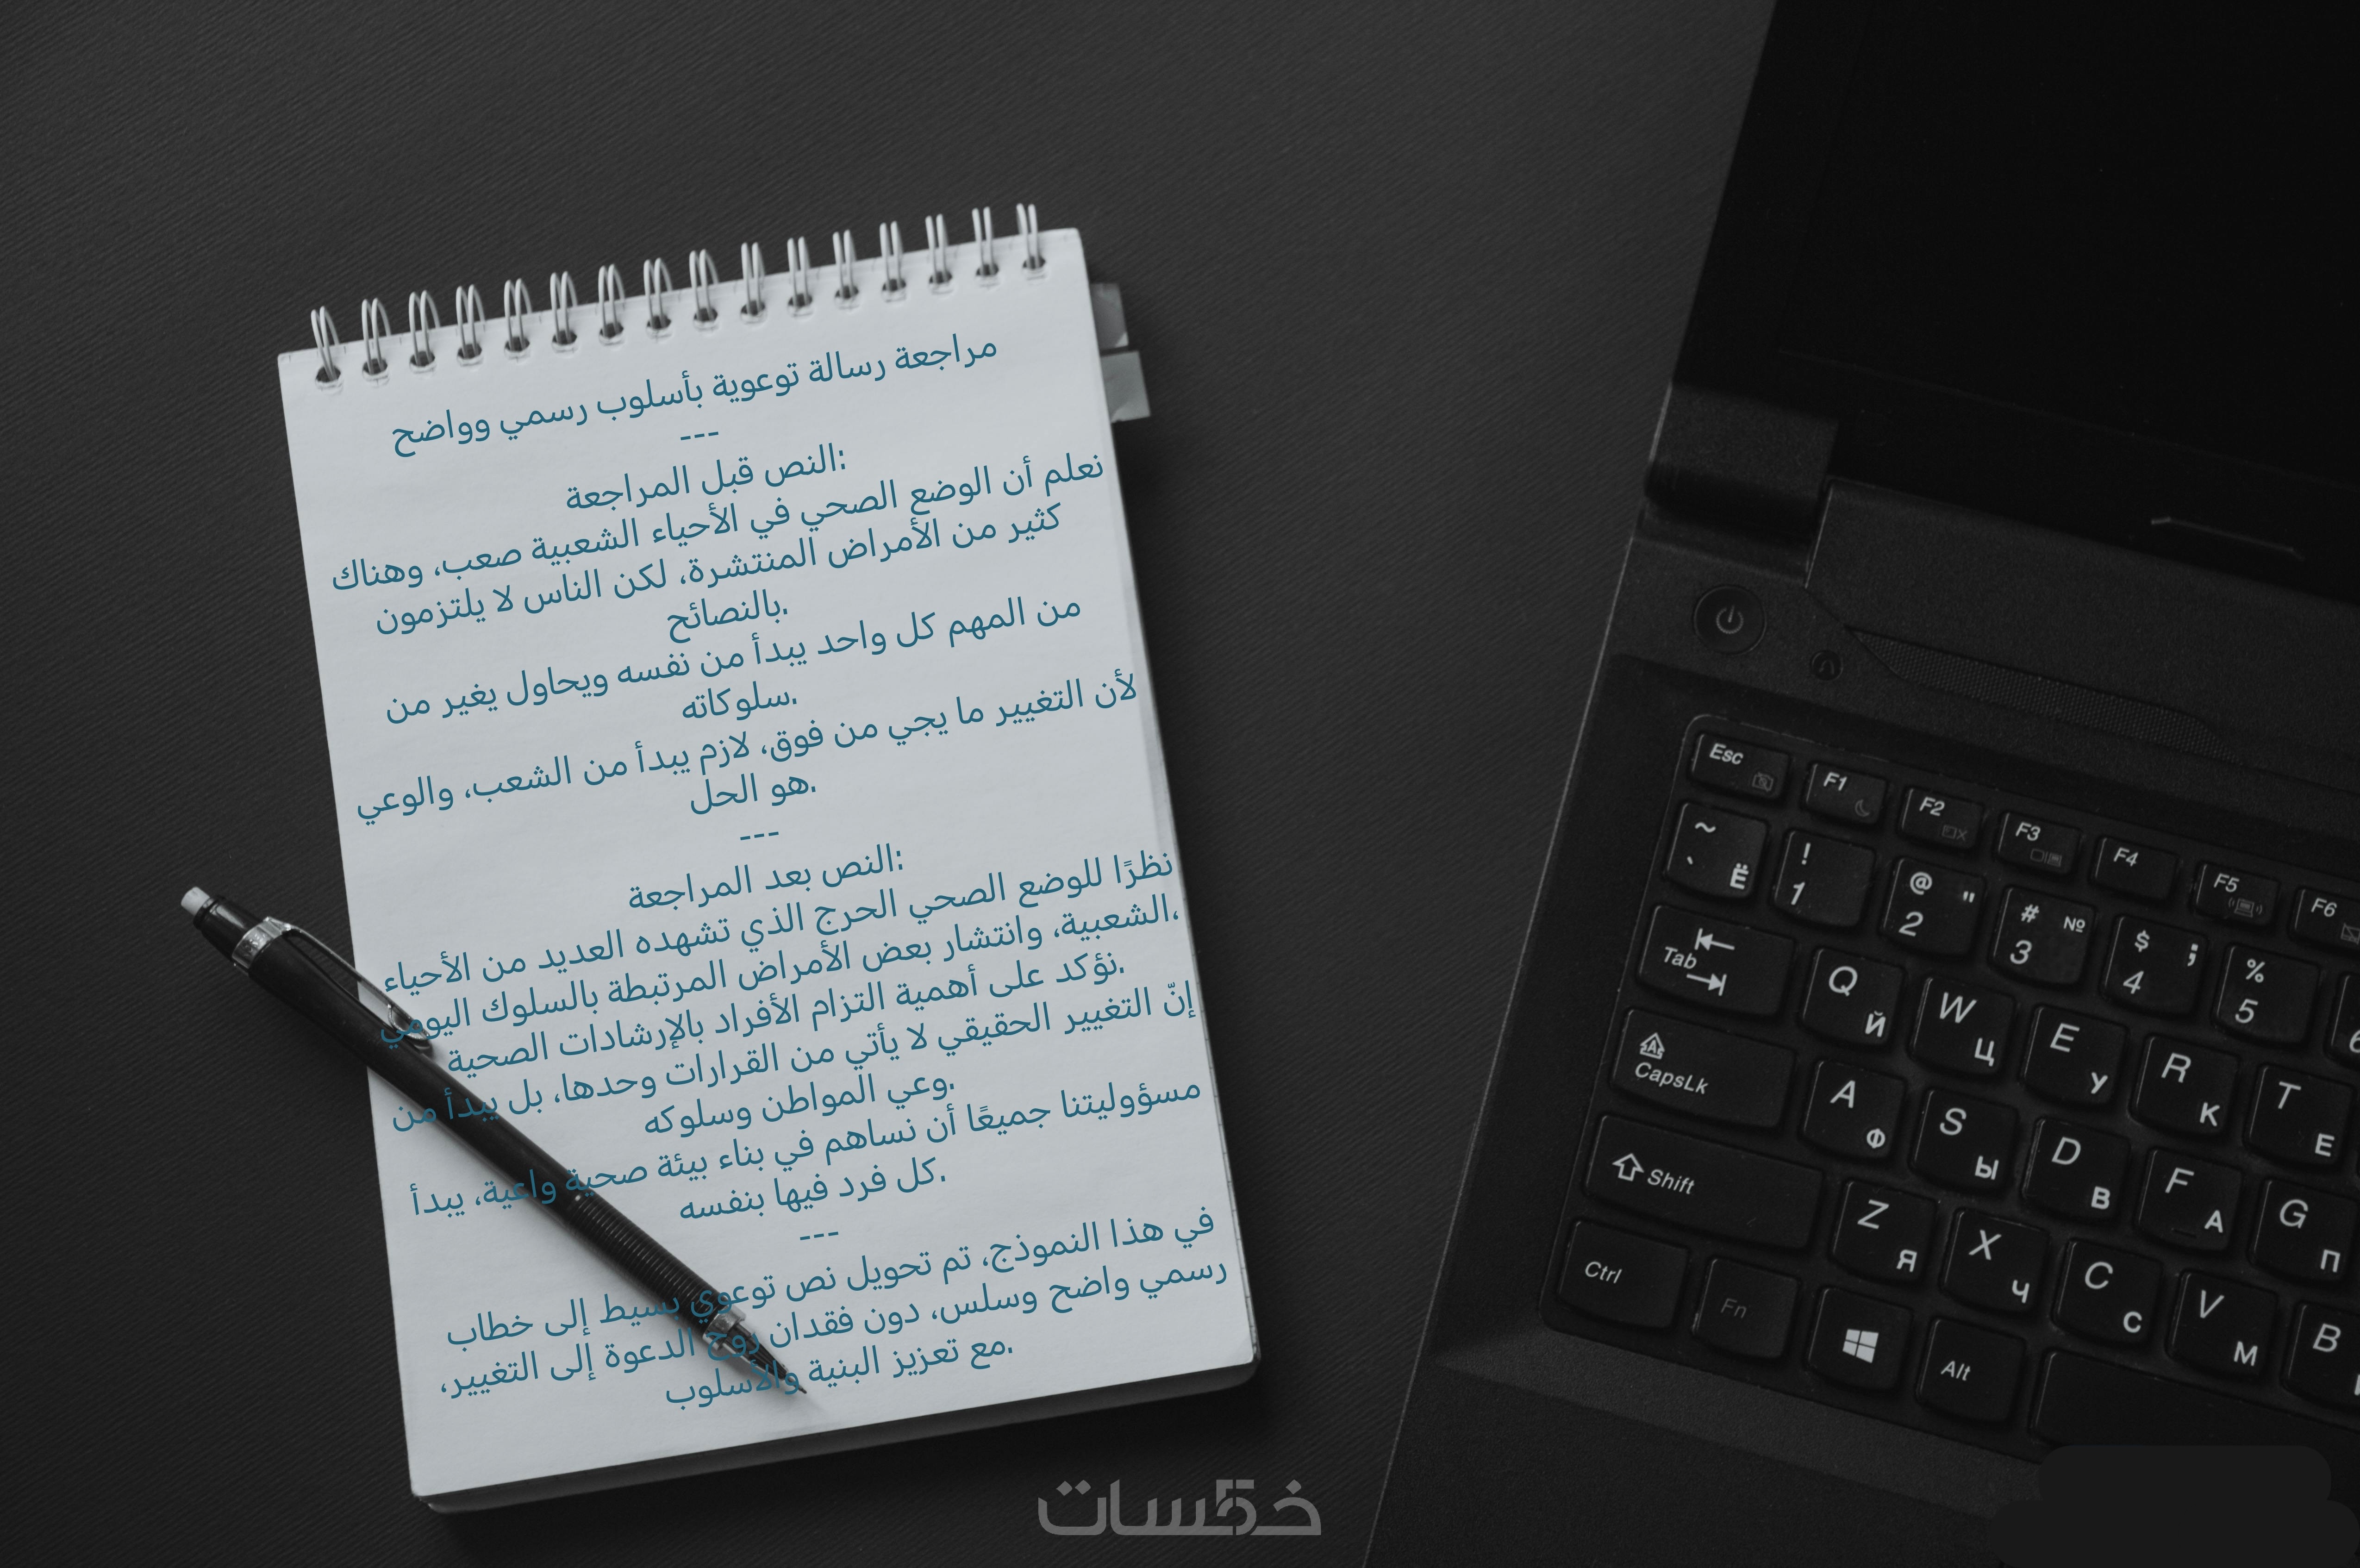 مراجعة رسالة توعوية بأسلوب رسمي وواضح
---
النص قبل المراجعة:
نعلم أن الوضع الصحي في الأحياء الشعبية صعب، وهناك
كثير من الأمراض المنتشرة، لكن الناس لا يلتزمون
بالنصائح.
من المهم كل واحد يبدأ من نفسه ويحاول يغير من
سلوكاته.
لأن التغيير ما يجي من فوق، لازم يبدأ من الشعب، والوعي
هو الحل.
---
النص بعد المراجعة:
نظرًا للوضع الصحي الحرج الذي تشهده العديد من الأحياء
الشعبية، وانتشار بعض الأمراض المرتبطة بالسلوك اليومي،
نؤكد على أهمية التزام الأفراد بالإرشادات الصحية.
إنّ التغيير الحقيقي لا يأتي من القرارات وحدها، بل يبدأ من
وعي المواطن وسلوكه.
مسؤوليتنا جميعًا أن نساهم في بناء بيئة صحية واعية، يبدأ
كل فرد فيها بنفسه.
---
في هذا النموذج، تم تحويل نص توعوي بسيط إلى خطاب
رسمي واضح وسلس، دون فقدان روح الدعوة إلى التغيير،
مع تعزيز البنية والأسلوب.
Esc F1 F2 F3 F4 F5 F6
~ ` Ё ! 1 @ " 2 # № 3 $ ; 4 % 5 6
Tab Q Й W Ц E У R К T Е
CapsLk A Ф S Ы D В F А G П
Shift Z Я X Ч C С V М B
Ctrl Fn Alt
خمسات